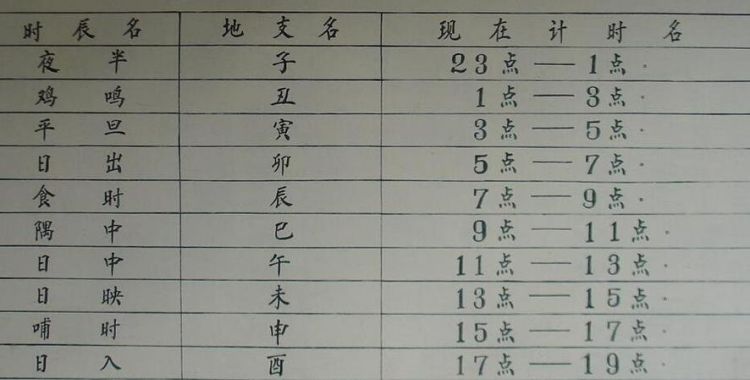 时辰名 地支名 现在计时名
夜半 子 23点—1点.
鸡鸣 丑 1点—3点.
平旦 寅 3点—5点.
日出 卯 5点—7点.
食时 辰 7点—9点.
隅中 巳 9点—11点.
日中 午 11点—13点.
日映 未 13点—15点.
哺时 申 15点—17点.
日入 酉 17点—19点.